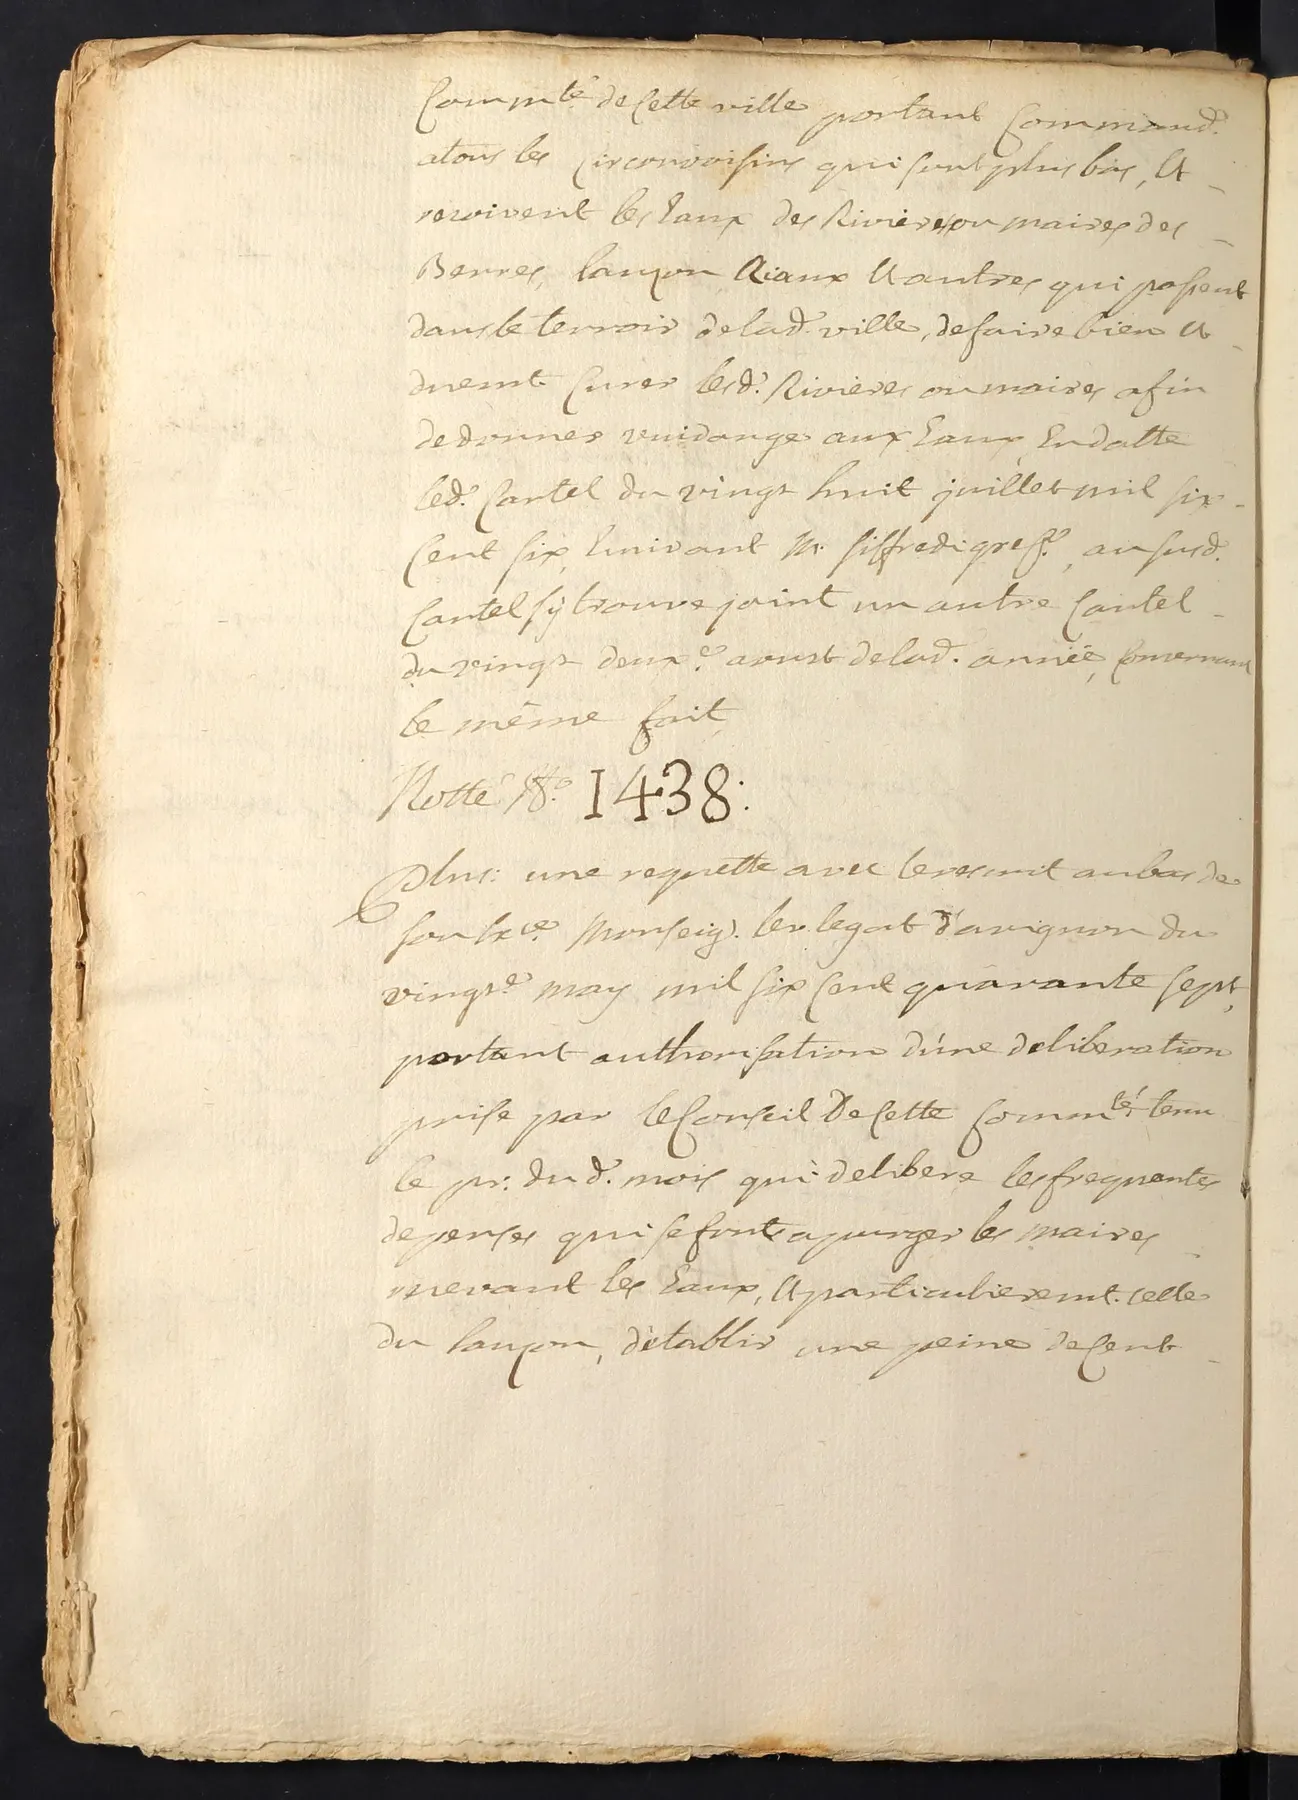 Comm.té de Cette ville portant Command.t
a tous les Circonvoisins qui sont plus bas, Et
recoivent les Eaux des Rivieres ou maires des
Berres, lauzon Riaux Et autres qui passent
dans le terroir de lad.e ville, de faire bien Et
duemt. Curer lesd.s Rivieres ou maires afin
de donner vuidange aux Eaux, En datte
led.t Cartel du vingt huit juillet mil six
Cent six, Ecrivant M.r Siffredi greff.r, au susd.t
Cartel sÿ trouve joint un autre Cartel
du vingt deux.e aoust de lad.e année, Concernant
le même fait,
Notté N.o 1438.
Plus: une requette avec le rescrit au bas de
son Ex.ce Monseig.r le v. legat d'avignon du
vingt.e may mil six Cent quarante sept,
portant authorisation d'une deliberation
prise par le Conseil De Cette Comm.té tenu
le pr. du d.t mois qui delibera les frequentes
depenses qui se font a purger les maires
mevant les Eaux, Et particulieremt. celle
du lauzon, d'etablir une peine de Cent